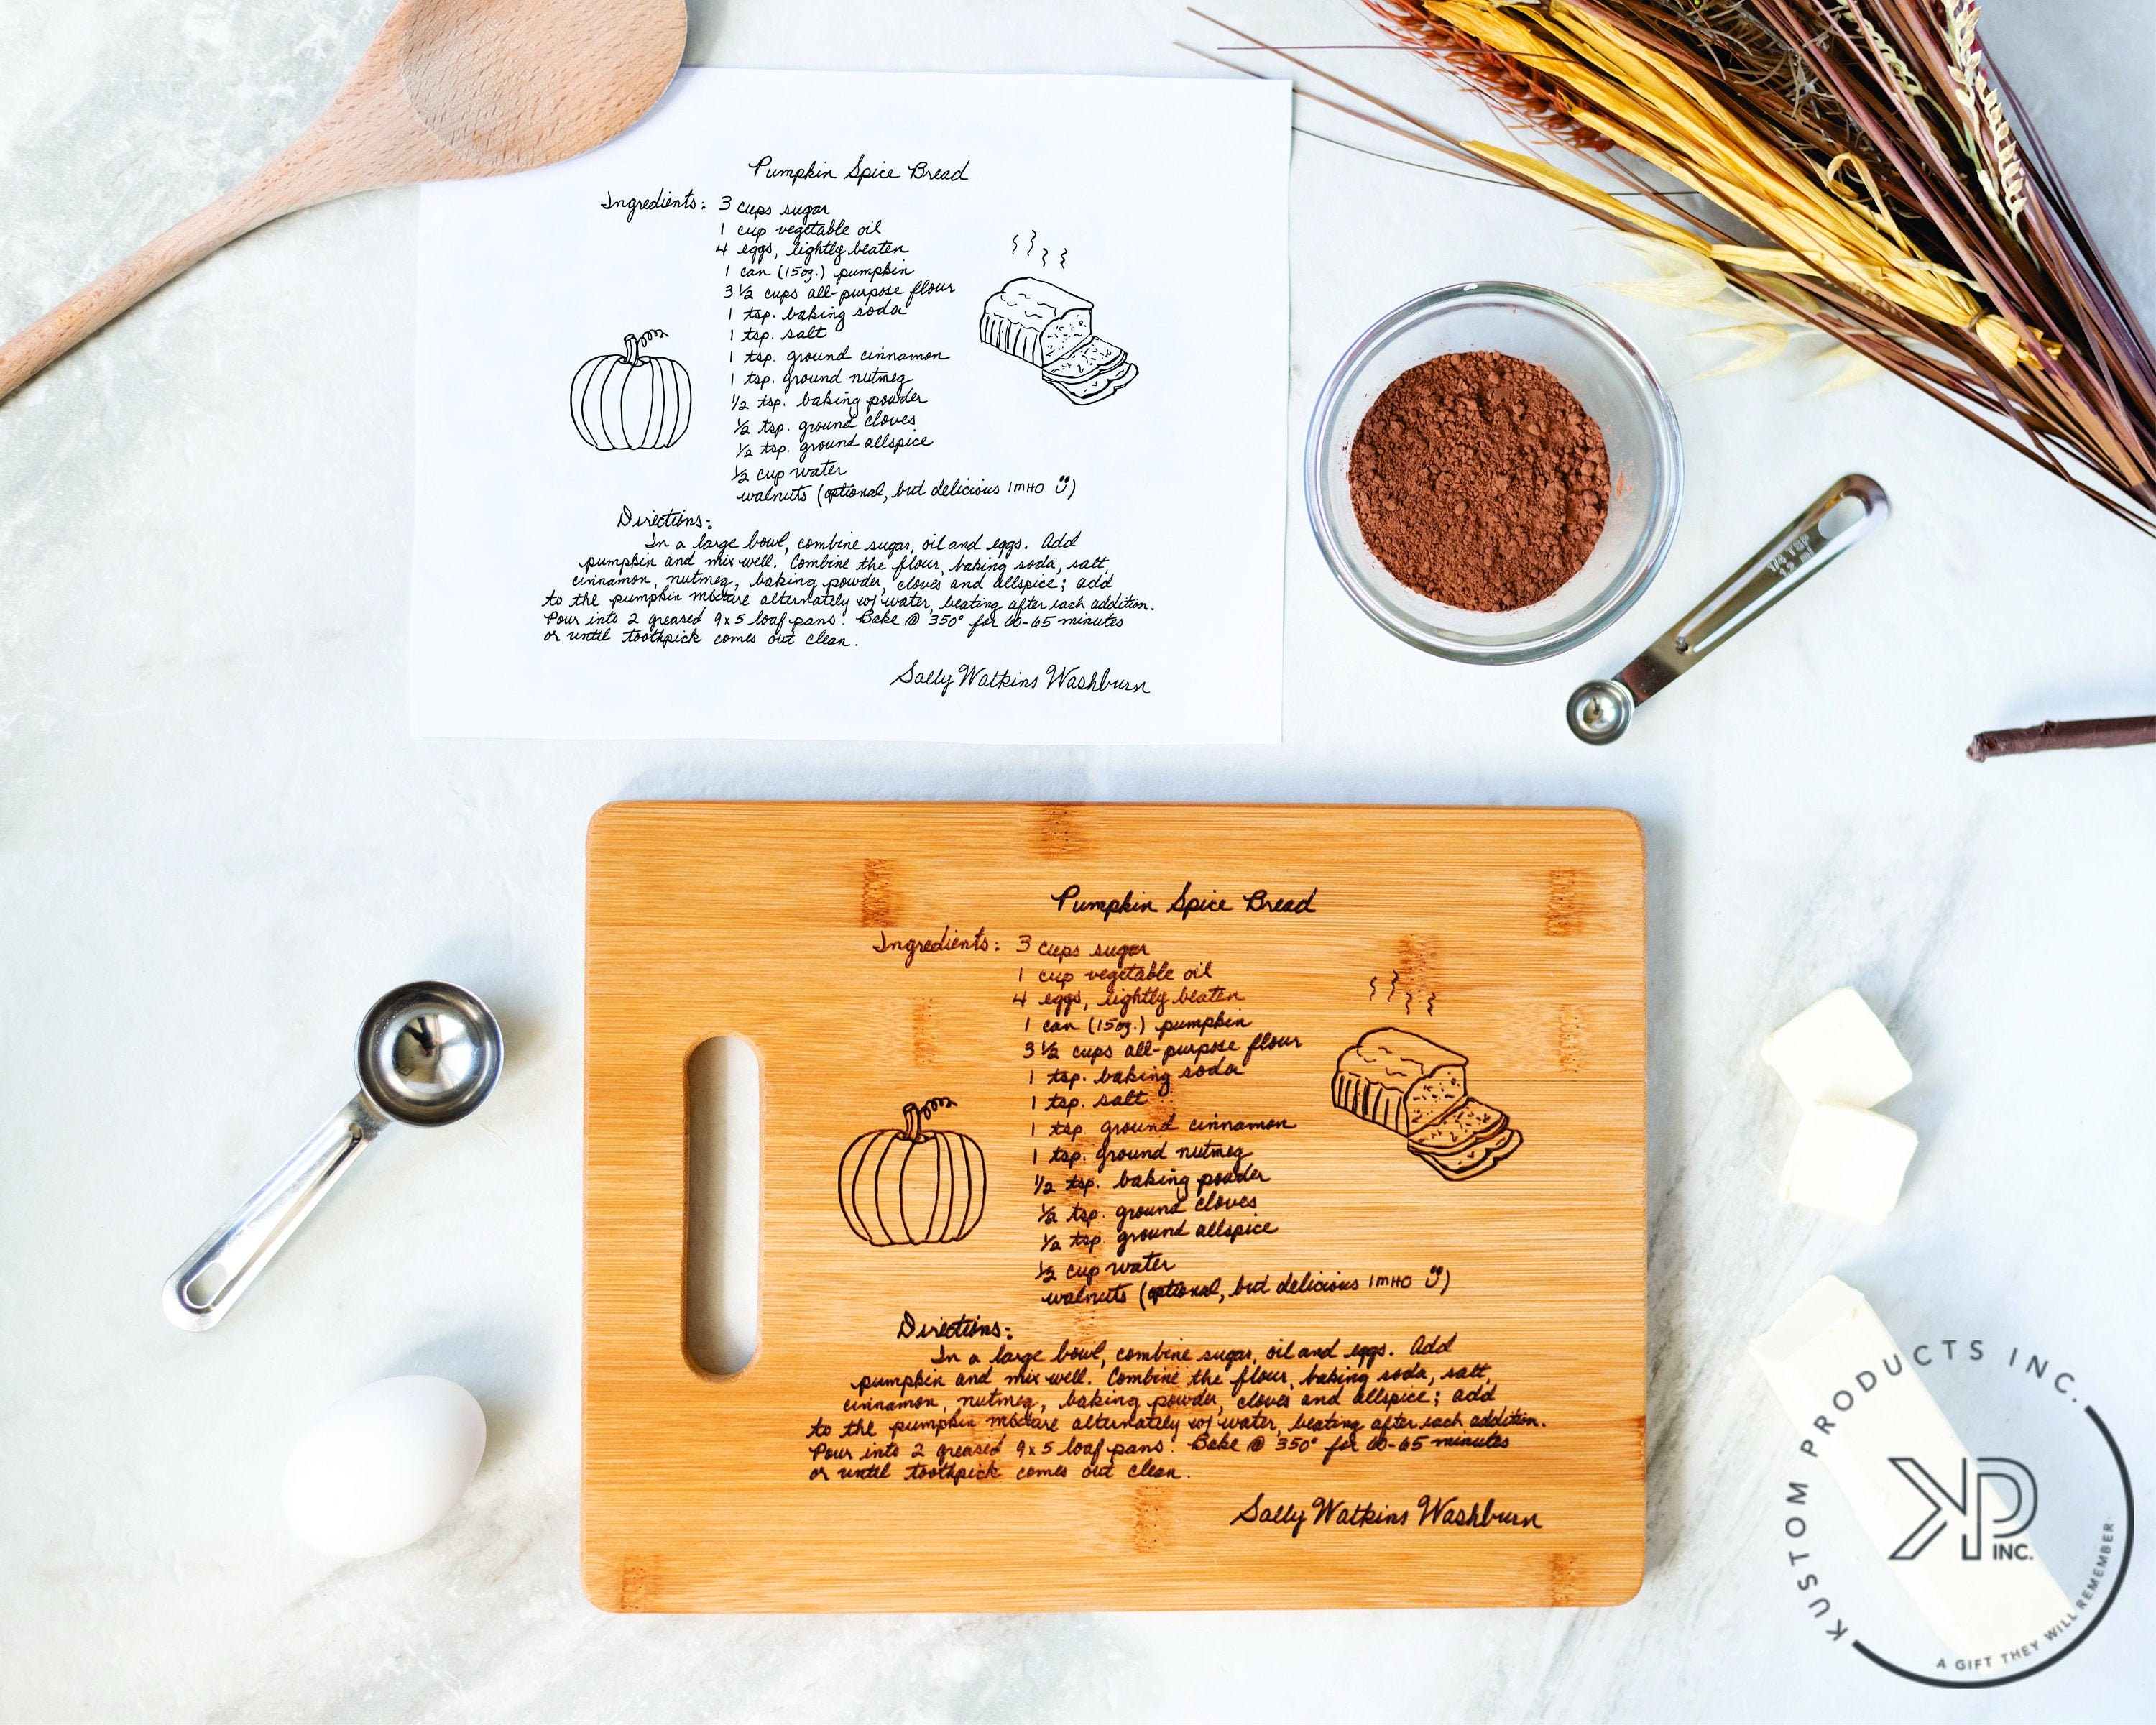 Pumpkin Spice Bread
Ingredients: 3 cups sugar
1 cup vegetable oil
4 eggs, lightly beaten
1 can (15oz.) pumpkin
3 1/2 cups all-purpose flour
1 tsp. baking soda
1 tsp. salt
1 tsp. ground cinnamon
1 tsp. ground nutmeg
1/2 tsp. baking powder
1/2 tsp. ground cloves
1/2 tsp. ground allspice
1/2 cup water
walnuts (optional, but delicious IMHO )
Directions:
In a large bowl, combine sugar, oil and eggs. Add
pumpkin and mix well. Combine the flour, baking soda, salt,
cinnamon, nutmeg, baking powder, cloves and allspice; add
to the pumpkin mixture alternately w/ water, beating after each addition.
Pour into 2 greased 9x5 loaf pans. Bake @ 350° for 60-65 minutes
or until toothpick comes out clean.
Sally Watkins Washburn
1/4 TSP
1.2 ml
Pumpkin Spice Bread
Ingredients: 3 cups sugar
1 cup vegetable oil
4 eggs, lightly beaten
1 can (15oz.) pumpkin
3 1/2 cups all-purpose flour
1 tsp. baking soda
1 tsp. salt
1 tsp. ground cinnamon
1 tsp. ground nutmeg
1/2 tsp. baking powder
1/2 tsp. ground cloves
1/2 tsp. ground allspice
1/2 cup water
walnuts (optional, but delicious IMHO )
Directions:
In a large bowl, combine sugar, oil and eggs. Add
pumpkin and mix well. Combine the flour, baking soda, salt,
cinnamon, nutmeg, baking powder, cloves and allspice; add
to the pumpkin mixture alternately w/ water, beating after each addition.
Pour into 2 greased 9x5 loaf pans. Bake @ 350° for 60-65 minutes
or until toothpick comes out clean.
Sally Watkins Washburn
KUSTOM PRODUCTS INC.
KP INC.
A GIFT THEY WILL REMEMBER